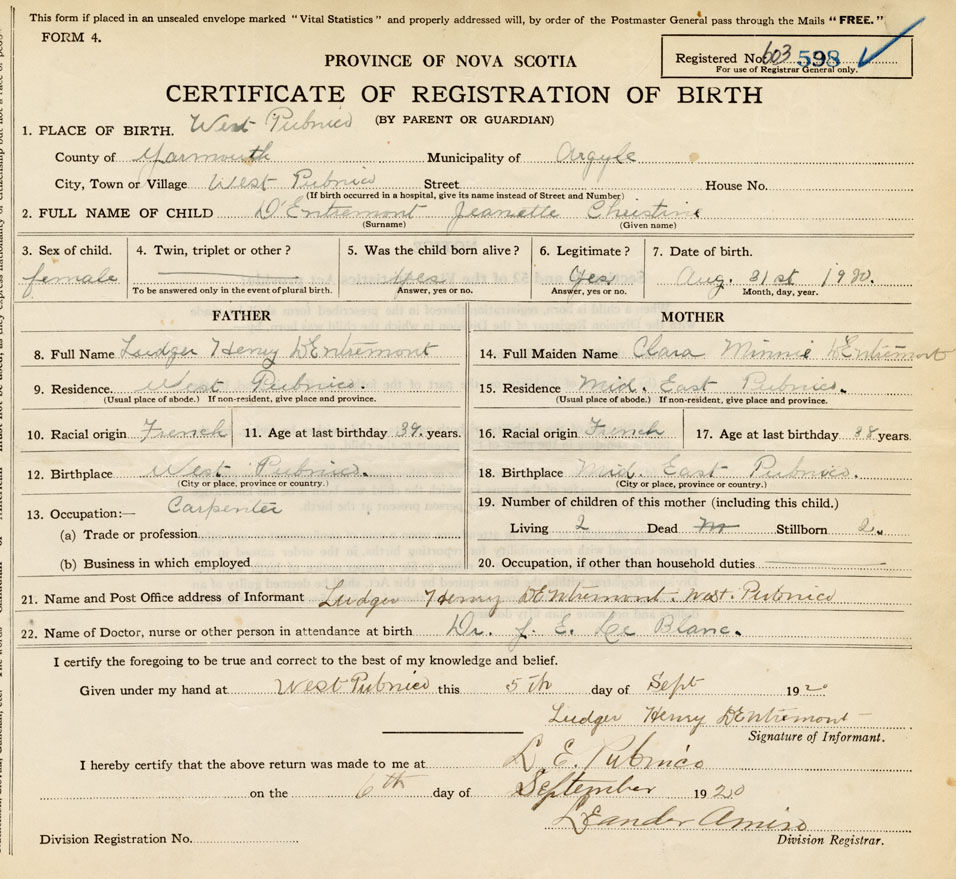 This form if placed in an unsealed envelope marked "Vital Statistics" and properly addressed will, by order of the Postmaster General pass through the Mails "FREE."
FORM 4.
Registered No. 603 598
For use of Registrar General only.
PROVINCE OF NOVA SCOTIA
CERTIFICATE OF REGISTRATION OF BIRTH
(BY PARENT OR GUARDIAN)
1. PLACE OF BIRTH. West Pubnico
County of Yarmouth Municipality of Argyle
City, Town or Village West Pubnico Street House No.
(If birth occurred in a hospital, give its name instead of Street and Number)
2. FULL NAME OF CHILD D'Entremont Jeanette Christine
(Surname) (Given name)
3. Sex of child. 4. Twin, triplet or other? 5. Was the child born alive? 6. Legitimate? 7. Date of birth.
female Yes Yes Aug. 31st 1920.
To be answered only in the event of plural birth. Answer, yes or no. Answer, yes or no. Month, day, year.
FATHER MOTHER
8. Full Name Ludger Henry D'Entremont 14. Full Maiden Name Clara Minnie D'Entremont
9. Residence. West Pubnico. 15. Residence Mid. East Pubnico.
(Usual place of abode.) If non-resident, give place and province. (Usual place of abode.) If non-resident, give place and province.
10. Racial origin French 11. Age at last birthday 39. years. 16. Racial origin French 17. Age at last birthday 38 years.
12. Birthplace West Pubnico. 18. Birthplace Mid. East Pubnico.
(City or place, province or country.) (City or place, province or country.)
13. Occupation:— Carpenter 19. Number of children of this mother (including this child.)
(a) Trade or profession Living 2 Dead Stillborn 2.
(b) Business in which employed 20. Occupation, if other than household duties
21. Name and Post Office address of Informant Ludger Henry D'Entremont. West. Pubnico
22. Name of Doctor, nurse or other person in attendance at birth Dr. J. E. Le Blanc.
I certify the foregoing to be true and correct to the best of my knowledge and belief.
Given under my hand at West Pubnico this 5th day of Sept 1920
Ludger Henry D'Entremont
Signature of Informant.
I hereby certify that the above return was made to me at L. E. Pubnico
on the 6th day of September 1920
Leander Amiro
Division Registration No. Division Registrar.